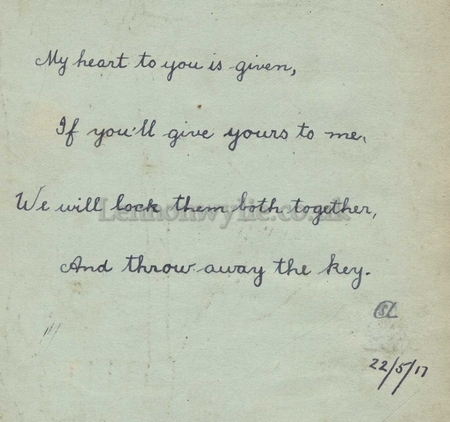 My heart to you is given,
If you'll give yours to me,
We will lock them both together,
Lennonwylie.co.uk
And throw away the key.
SL
22/5/17